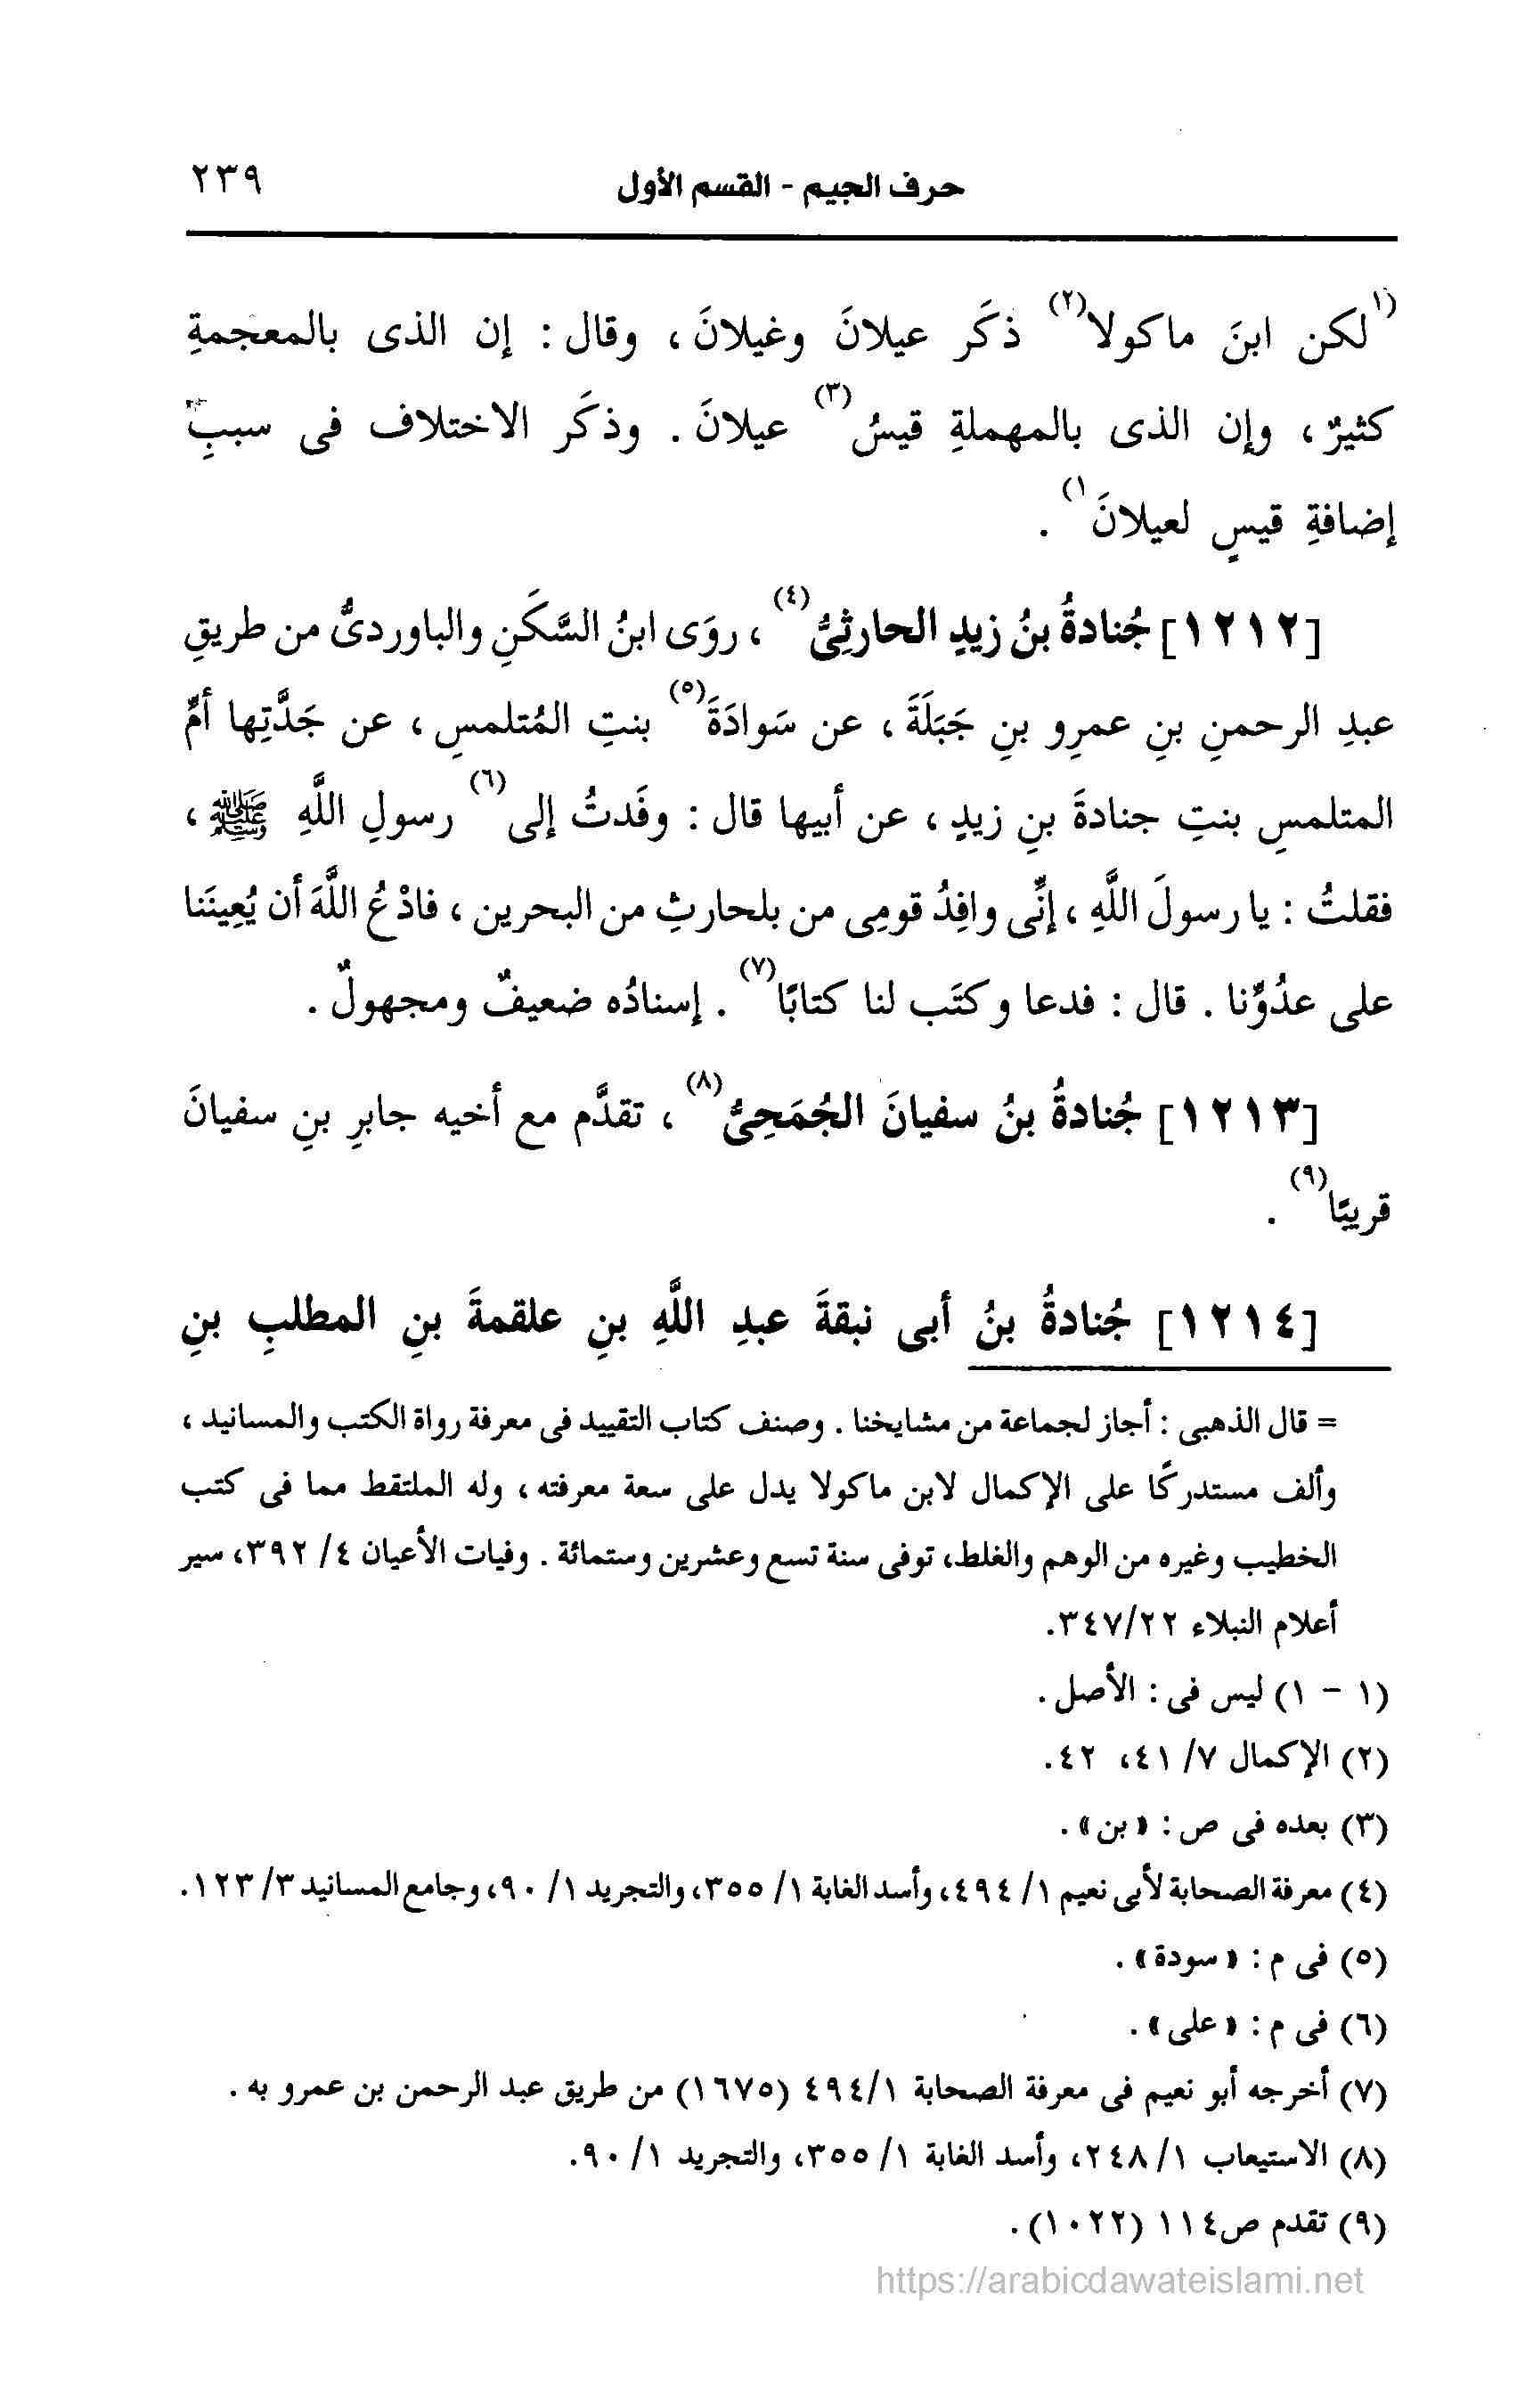 حرف الجيم - القسم الأول ٢٣٩
(١لكن ابنَ ماكولا(٢) ذكَر عيلانَ وغيلانَ ، وقال : إن الذى بالمعجمةِ
كثيرٌ ، وإن الذى بالمهملةِ قيسُ(٣) عيلانَ . وذكَر الاختلاف فى سببِ
إضافةِ قيسٍ لعيلانَ١) .
[١٢١٢] جُنادةُ بنُ زيدٍ الحارثِىُّ(٤) ، روَى ابنُ السَّكَنِ والباوردىُّ من طريقِ
عبدِ الرحمنِ بنِ عمرِو بنِ جَبَلَةَ ، عن سَوادَةَ(٥) بنتِ المُتلمسِ ، عن جَدَّتِها أمِّ
المتلمسِ بنتِ جنادةَ بنِ زيدٍ ، عن أبيها قال : وفَدتُ إلى(٦) رسولِ اللَّهِ ﷺ ،
فقلتُ : يا رسولَ اللَّهِ ، إنِّى وافِدُ قومِى من بلحارثِ من البحرين ، فادْعُ اللَّهَ أن يُعِينَنا
على عدُوِّنا . قال : فدعا وكتَب لنا كتابًا(٧) . إسنادُه ضعيفٌ ومجهولٌ .
[١٢١٣] جُنادةُ بنُ سفيانَ الجُمَحِىُّ(٨) ، تقدَّم مع أخيه جابرِ بنِ سفيانَ
قريبًا(٩) .
[١٢١٤] جُنادةُ بنُ أبى نبقةَ عبدِ اللَّهِ بنِ علقمةَ بنِ المطلبِ بنِ
= قال الذهبى : أجاز لجماعة من مشايخنا . وصنف كتاب التقييد فى معرفة رواة الكتب والمسانيد ،
وألف مستدركًا على الإكمال لابن ماكولا يدل على سعة معرفته ، وله الملتقط مما فى كتب
الخطيب وغيره من الوهم والغلط، توفى سنة تسع وعشرين وستمائة . وفيات الأعيان ٤/ ٣٩٢، سير
أعلام النبلاء ٢٢/٣٤٧.
(١ - ١) ليس فى : الأصل .
(٢) الإكمال ٧/ ٤١، ٤٢.
(٣) بعده فى ص : « بن » .
(٤) معرفة الصحابة لأبى نعيم ١/ ٤٩٤، وأسد الغابة ١/ ٣٥٥، والتجريد ١/ ٩٠، وجامع المسانيد ٣/ ١٢٣.
(٥) فى م : « سودة » .
(٦) فى م : « على » .
(٧) أخرجه أبو نعيم فى معرفة الصحابة ١/٤٩٤ (١٦٧٥) من طريق عبد الرحمن بن عمرو به .
(٨) الاستيعاب ١/ ٢٤٨، وأسد الغابة ١/ ٣٥٥، والتجريد ١/ ٩٠.
(٩) تقدم ص١١٤ (١٠٢٢) .
https://arabicdawateislami.net